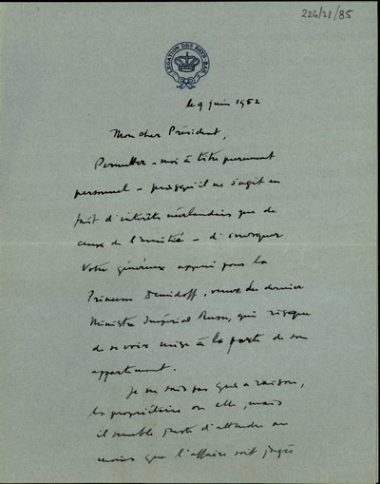 226/21/85
LEGATION DES PAYS-BAS
le 9 juin 1952
Mon cher Président,
Permettez-moi à titre purement
personnel – puisqu'il ne s'agit en
fait d'intérêts néerlandais que de
ceux de l'amitié – d'invoquer
votre généreux appui pour la
Princesse Demidoff, veuve du dernier
Ministre Impérial Russe, qui risque
de se voir mise à la porte de son
appartement.
Je ne sais pas qui a raison,
la propriétaire ou elle, mais
il semble juste d'attendre au
moins que l'affaire soit jugée